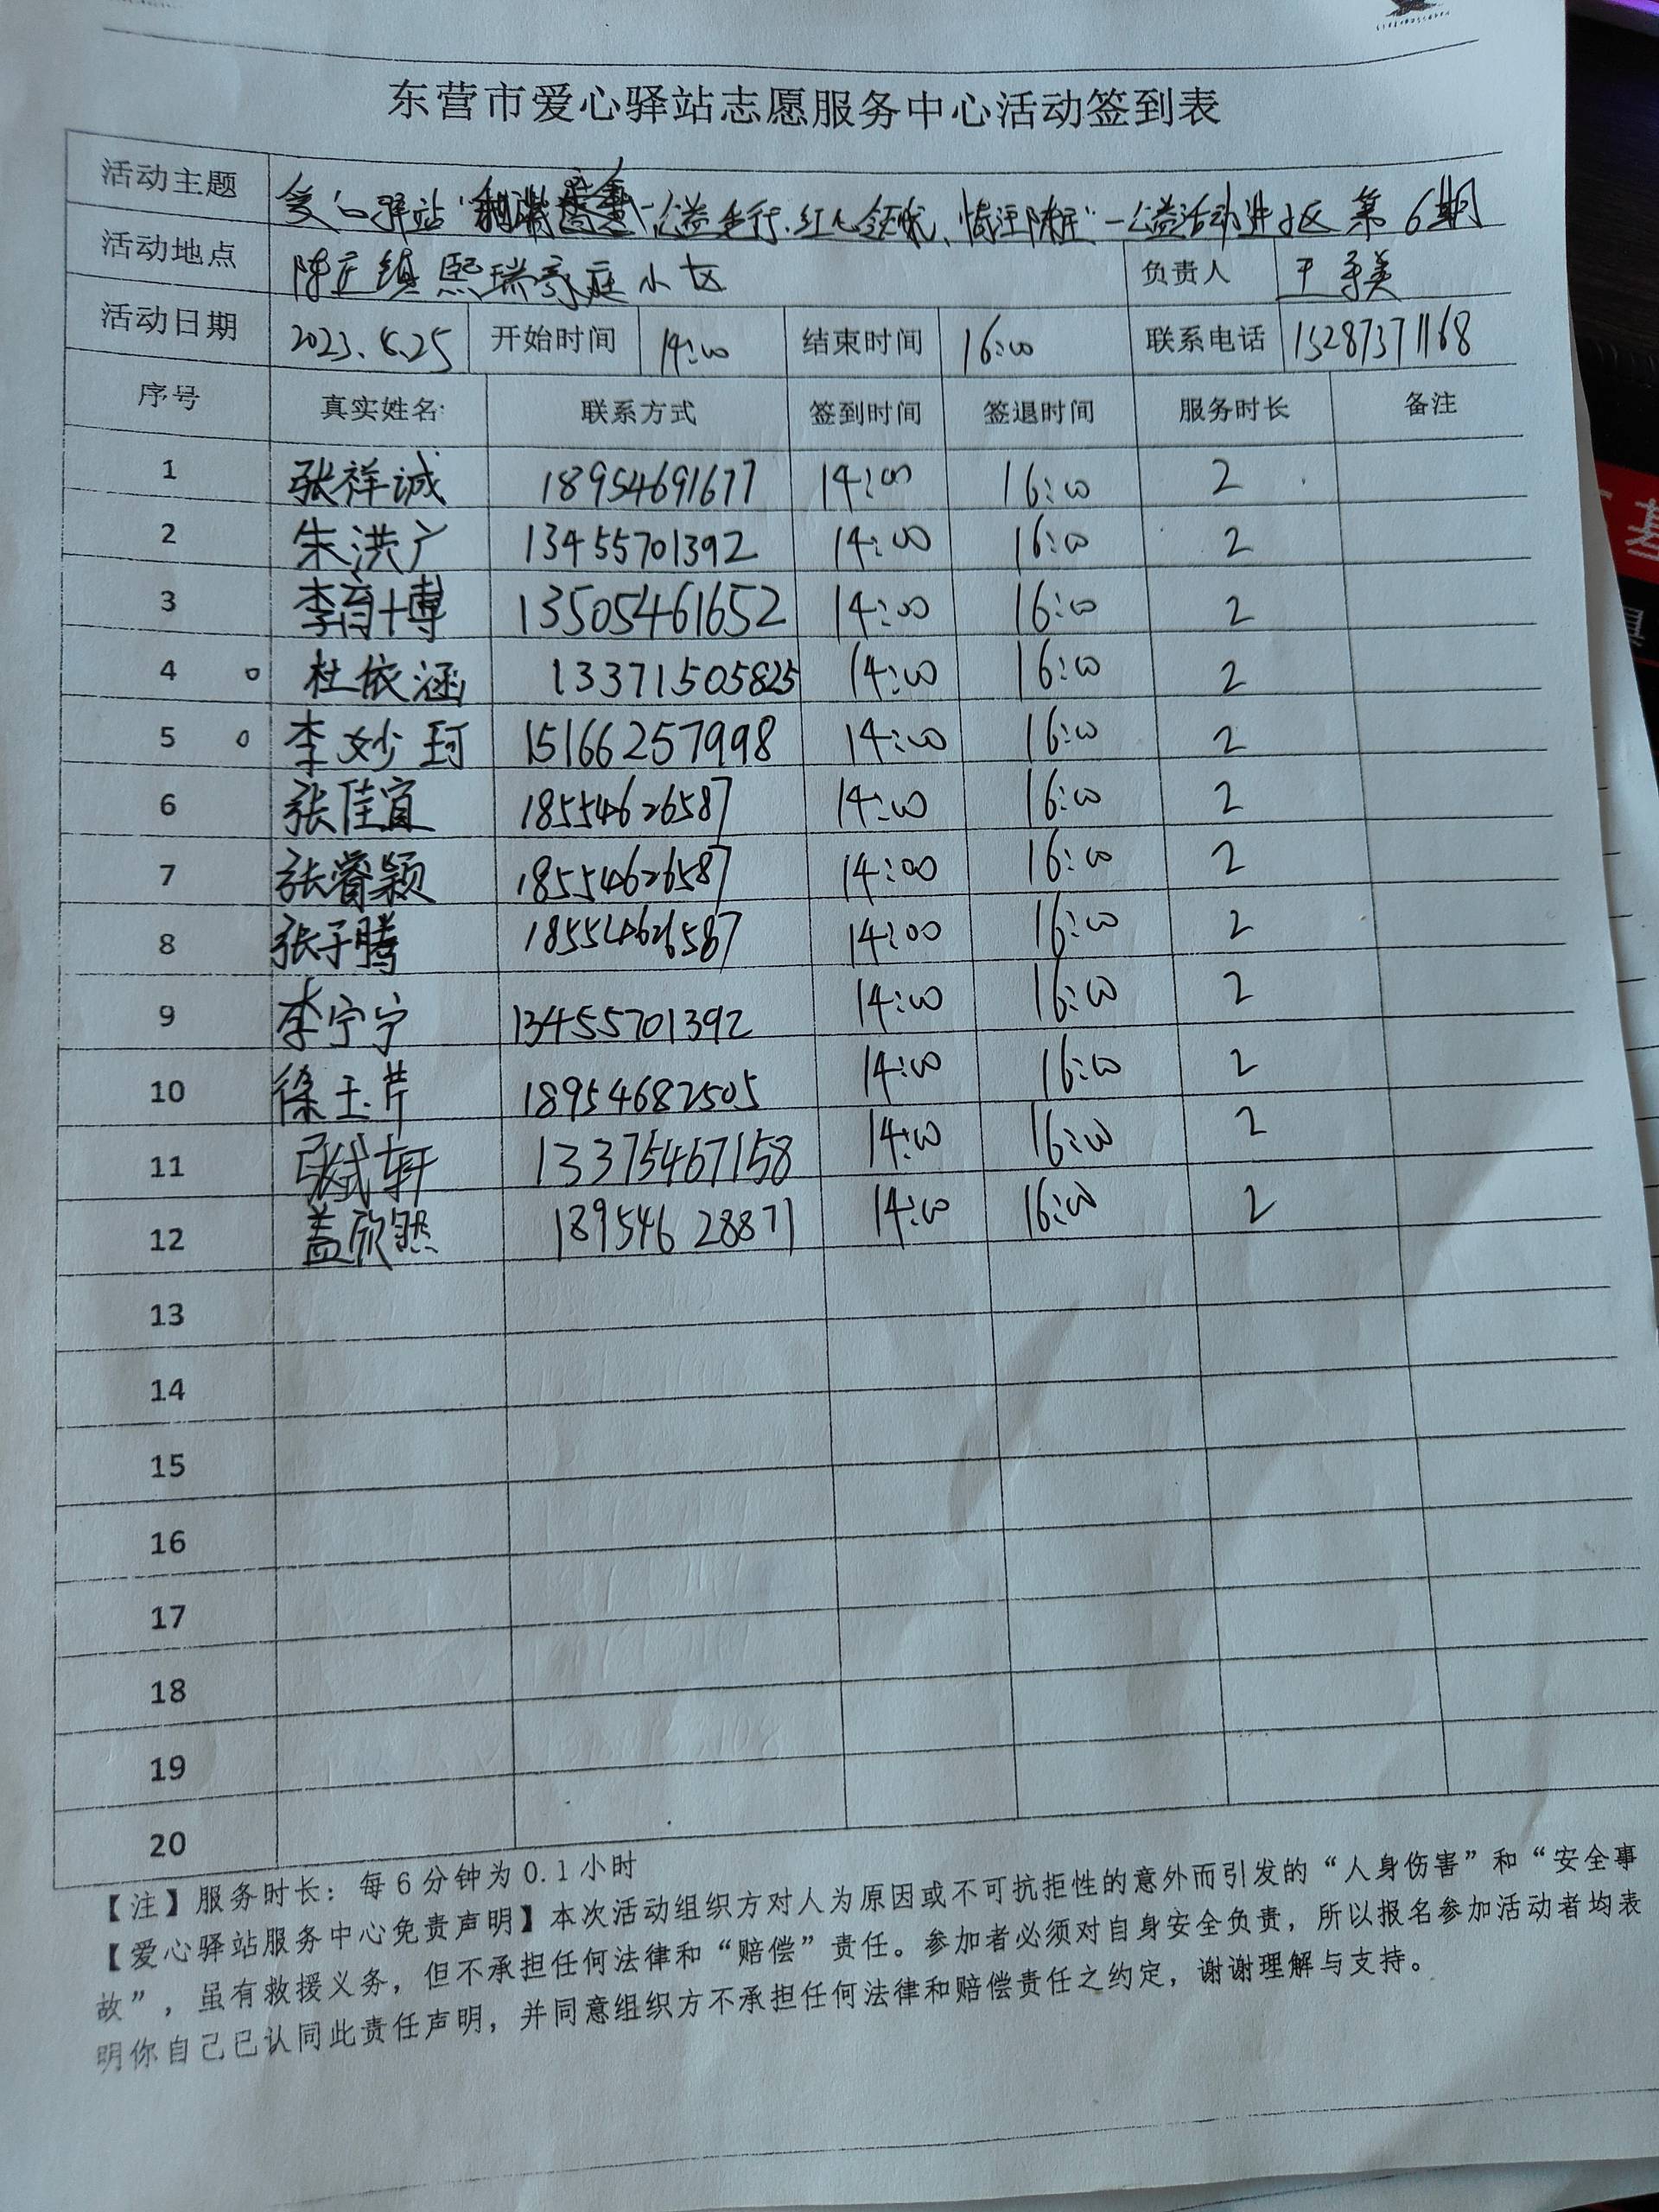 东营市爱心驿站志愿服务中心活动签到表
活动主题 爱心驿站“公益先行、红心领航、情注陈庄”—公益活动进小区 第6期
活动地点 陈庄镇熙瑞家庭小区 负责人 王
活动日期 2023.6.25 开始时间 14:00 结束时间 16:00 联系电话 15287371168
序号 真实姓名 联系方式 签到时间 签退时间 服务时长 备注
1 张祥诚 18954691677 14:00 16:00 2
2 朱洪广 13455701392 14:00 16:00 2
3 李育博 13505461652 14:00 16:00 2
4 杜依涵 13371505825 14:00 16:00 2
5 李妙珂 15166257998 14:00 16:00 2
6 张佳宜 18554626587 14:00 16:00 2
7 张睿颖 18554626587 14:00 16:00 2
8 张子腾 18554626587 14:00 16:00 2
9 李宁宁 13455701392 14:00 16:00 2
10 徐玉芹 18954682505 14:00 16:00 2
11 张轩 13375467158 14:00 16:00 2
12 盖欣然 18954628871 14:00 16:00 2
13
14
15
16
17
18
19
20
【注】服务时长：每6分钟为0.1小时
【爱心驿站服务中心免责声明】本次活动组织方对人为原因或不可抗拒性的意外而引发的“人身伤害”和“安全事
故”，虽有救援义务，但不承担任何法律和“赔偿”责任。参加者必须对自身安全负责，所以报名参加活动者均表
明你自己已认同此责任声明，并同意组织方不承担任何法律和赔偿责任之约定，谢谢理解与支持。